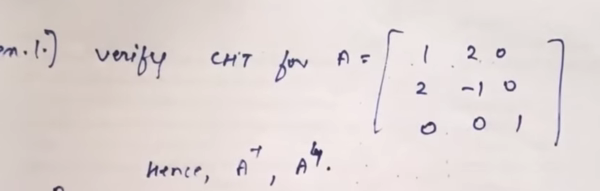 on.1.) verify CHT for A = [ 1 2 0
2 -1 0
0 0 1 ]
Hence, A⁻¹, A⁴.